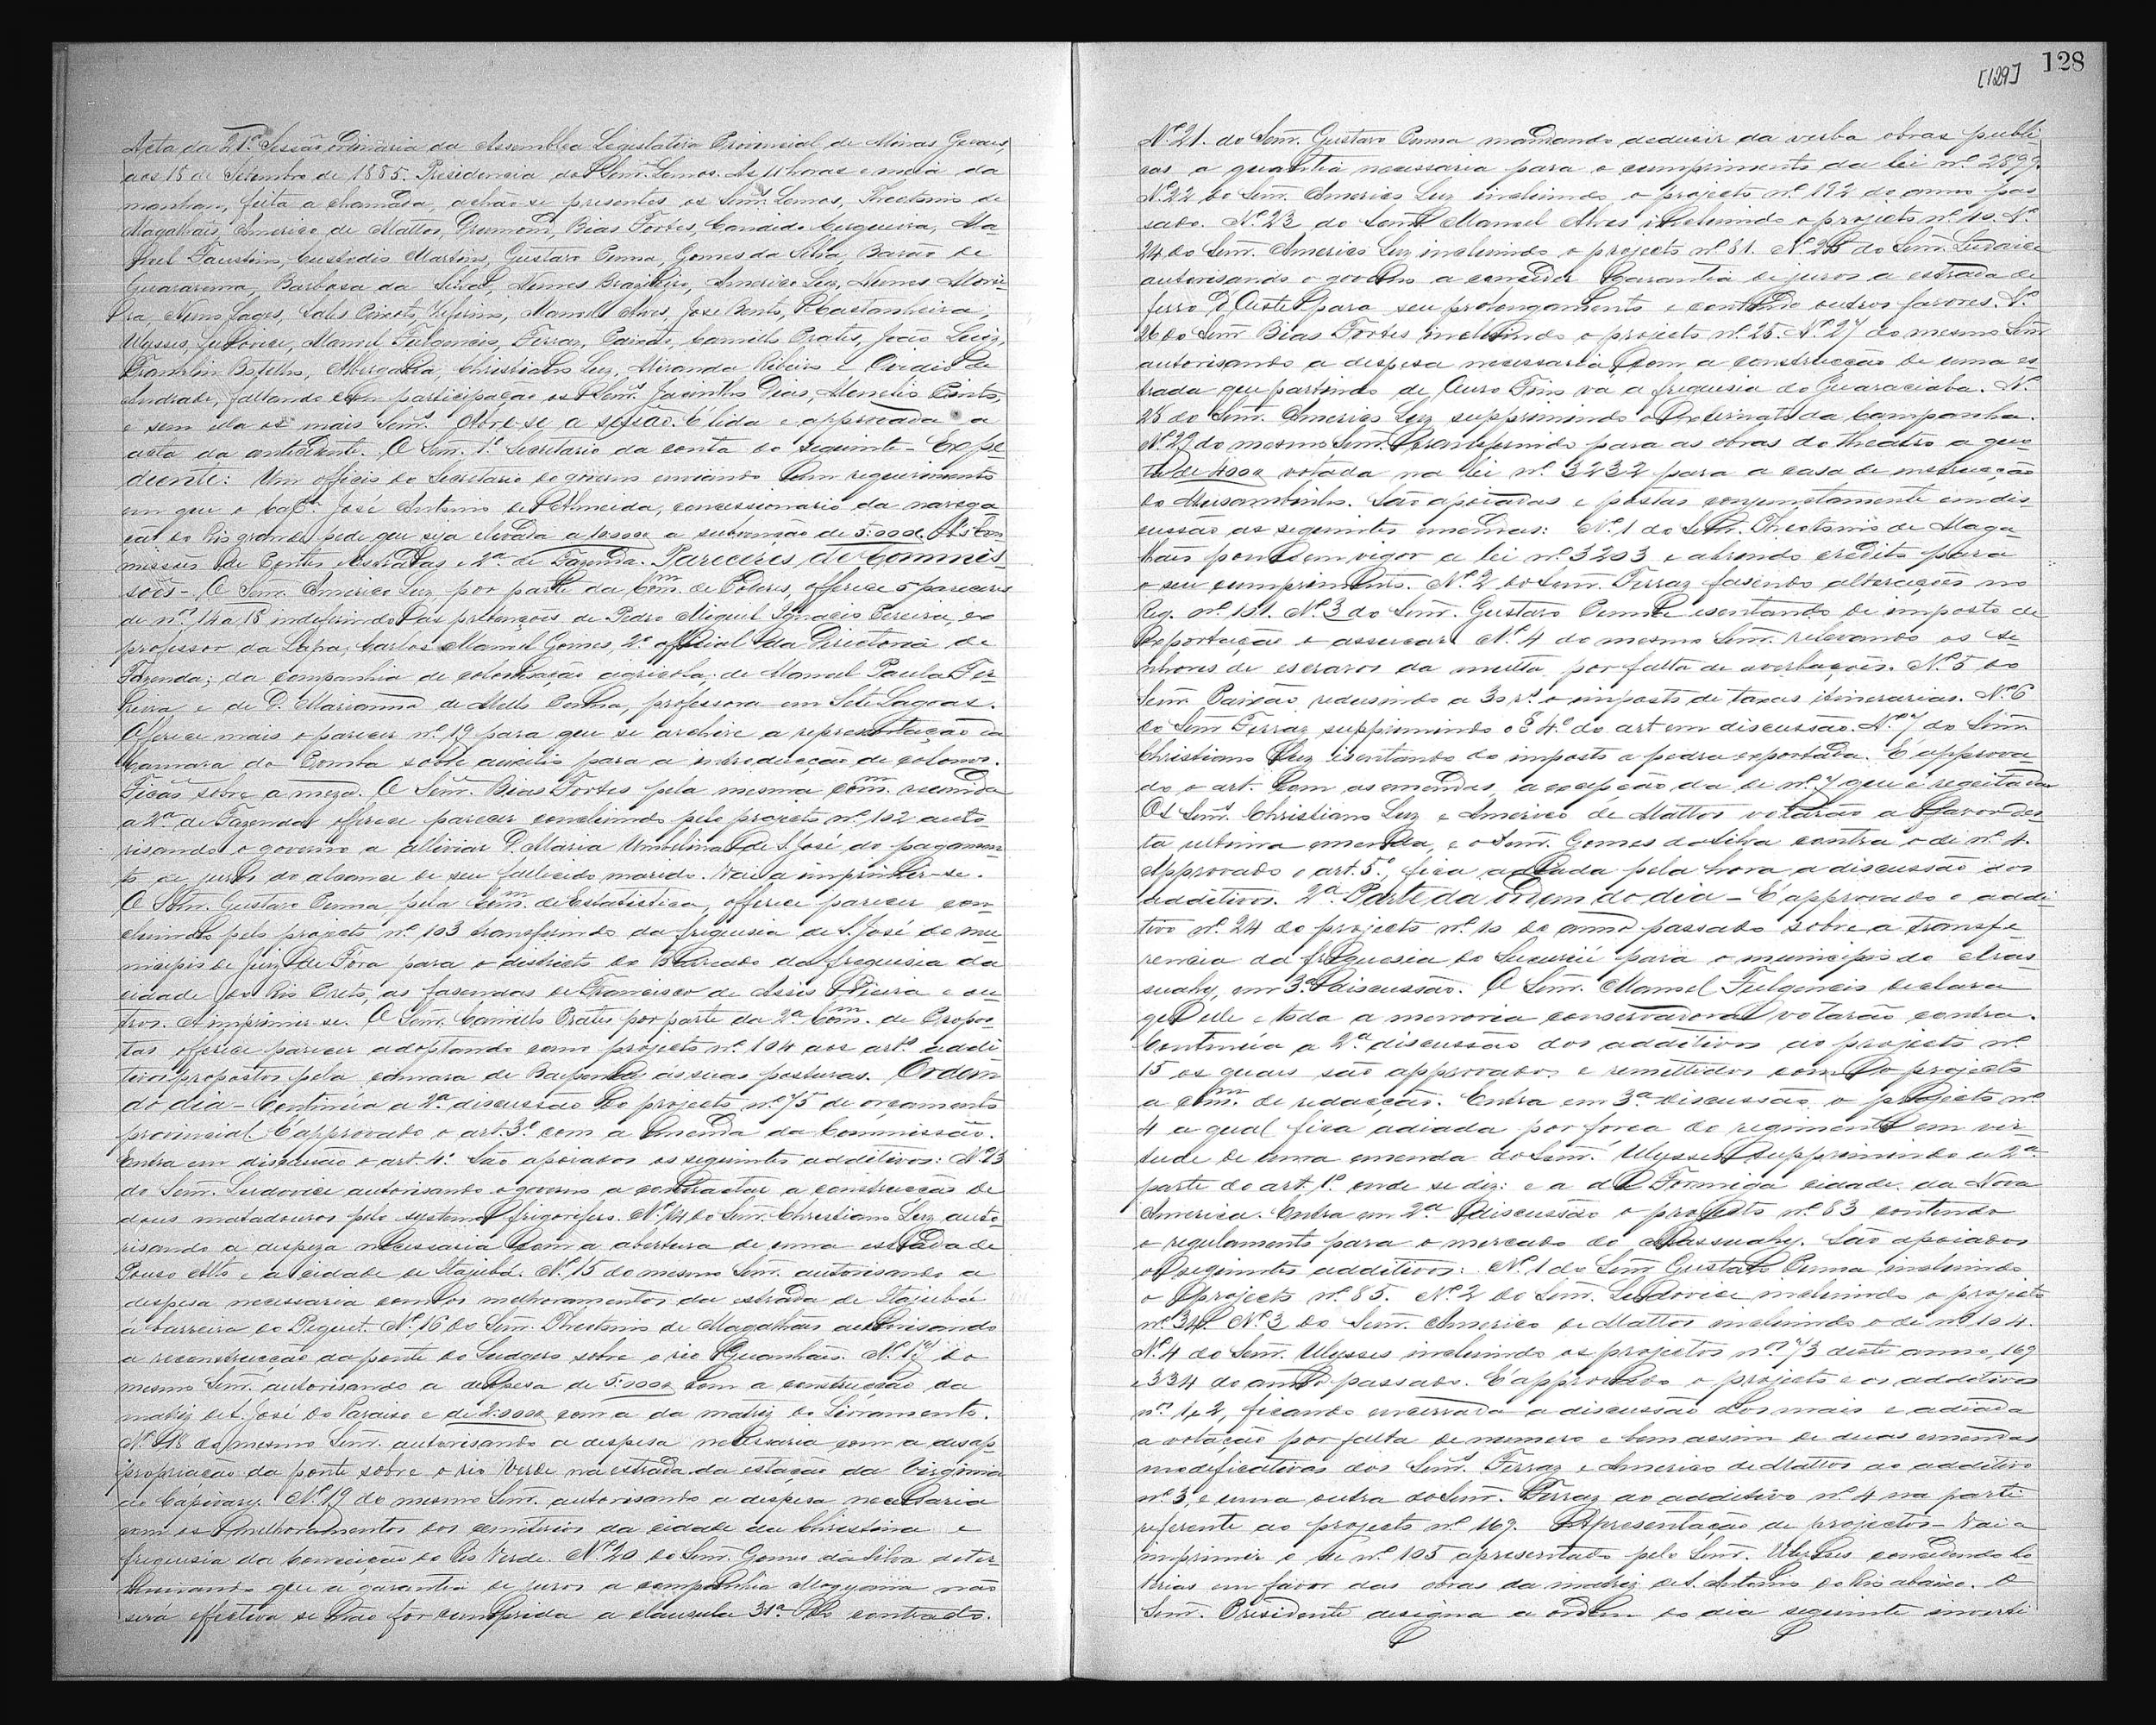 Acta da 21ª Sessão Ordinaria da Assemblea Legislativa Provincial de Minas Geraes,
aos 18 de Setembro de 1885. Presidencia do Senr. Lemos. As 11 horas e meia da
manhan, feita a chamada, achão-se presentes os Senrs. Lemos, Theotonio de
Magalhães, Americo de Mattos, Drumond, Bias Fortes, Candido Cerqueira, Ma-
noel Faustino, Custodio Martins, Gustavo Penna, Gomes da Silva, Barão de
Guararema, Barbosa da Silva, Nunes Brazileiro, Americo Luz, Nunes Morei-
ra, Nuno Lages, Salles Peixoto, Zeferino, Manoel Alves, José Bento, Castanheira,
Ulysses, Ludovice, Manoel Fulgencio, Ferraz, Paixão, Camillo Prates, João Luiz,
Franklin Botelho, Christiano Luz, Miranda Ribeiro e Ovidio de
Andrade, faltando com participação os Senrs. Jacintho Dias, Menelio Pinto,
e sem ella os mais Senrs. Abre-se a sessão. É lida e approvada a
acta da antecedente. O Senr. 1º Secretario da conta do seguinte - Expe
diente: Um officio do Secretario do governo enviando um requerimento
em que o José Antonio de Almeida, concessionario da navega-
ção do Rio grande pede que seja elevada a a subvenção de 5:000$. Ás Com
missões de Pontes e Estradas e 2ª de Fazenda. Pareceres de Commis-
sões - O Senr. Americo Luz, por parte da Comm. de Poderes, offerece 5 pareceres
de nos. 14 a 18 indeferindo as pretenções de Pedro Miguel Ignacio Pereira, ex
professor da Lapa; Carlos Manoel Gomes, 2º official da Directoria de
Fazenda; da companhia de colonisação agricola; de Manoel Paula Fer-
reira e de D. Marianna de Mello Penna, professora em Sete Lagoas.
Offerece mais o parecer nº 19 para que se archive a representação da
Camara do Pomba sobre auxilio para a introducção de colonos.
Ficão sobre a meza. O Senr. Bias Fortes pela mesma comm. reunida
a 2ª de Fazenda offerece parecer concluindo pelo projecto nº 102 auto-
risando o governo a alliviar D. Maria Umbelina de S. José do pagamen-
to de juros do alcance de seu fallecido marido. Vai a imprimir-se.
O Senr. Gustavo Penna pela Comm. de Estatistica, offerece parecer con-
cluindo pelo projecto nº 103 transferindo da freguesia de S. José do mu-
nicipio de Juiz de Fora para o districto do da freguesia da
cidade do Rio Preto, as fasendas de Francisco de Assis Vieira e ou-
tros. A imprimir-se. O Senr. Camillo Prates por parte da 2ª Comm. de Propos-
tas offerece parecer adoptando como projecto nº 104 aos arts. addi-
tivos propostos pela camara de Baependy ás suas posturas. Ordem
do dia - Continúa a 2ª discussão do projecto nº 75 de orçamento
provincial. É approvado o art. 3º com a emenda da Commissão.
Entra em discussão o art. 4º. São apoiados os seguintes additivos: Nº 13
do Senr. Ludovice autorisando o governo a contractar a construcção de
dous matadouros pelo systema frigorifero. Nº 14 do Senr. Christiano Luz auto
risando a despeza necessaria com a abertura de uma estrada de
Pouso Alto e a cidade de Itajubá. Nº 15 do mesmo Senr. autorisando a
despesa necessaria com os melhoramentos da estrada de Itajubá
á barreira do Piquet. Nº 16 do Senr. Theotonio de Magalhães autorisando
a reconstrucção da ponte do sobre o rio Guanhães. Nº 17 do
mesmo Senr. autorisando a despesa de 5:000$ com a construcção da
matriz de S. José do Paraiso e de 2:000$ com a da matriz do Livramento.
Nº 18 do mesmo Senr. autorisando a despesa necessaria com a desap-
propriação da ponte sobre o rio Verde na estrada da estação da Virginia
ao Capivary. Nº 19 do mesmo Senr. autorisando a despeza necessaria
com os melhoramentos dos cemiterios da cidade da Christina e
freguesia da Conceição do Rio Verde. Nº 20 do Senr. Gomes da Silva deter-
minando que a garantia de juros a companhia Mogyana não
será effectiva se não for cumprida a clausula 31ª do contracto.
128
[129]
Nº 21. do Senr. Gustavo Penna mandando deduzir da verba obras publi-
cas a quantia necessaria para o cumprimento da lei nº 2899.
Nº 22 do Senr. Americo Luz incluindo o projecto nº 192 do anno pas
sado. Nº 23 do Senr. Manoel Alves incluindo o projecto nº 40. Nº
24 do Senr. Americo Luz incluindo o projecto nº 81. Nº 25 do Senr. Ludovice
autorisando o governo a conceder garantia de juros a estrada de
ferro d'Oeste para seu prolongamento e contendo outros favores. Nº
26 do Senr. Bias Fortes incluindo o projecto nº 25. Nº 27 do mesmo Senr.
autorisando a despesa necessaria com a construcção de uma es-
trada que partindo de Ouro Fino vá a freguesia do Guaraciaba. Nº
28 do Senr. Americo Luz supprimindo o da Campanha.
Nº 29 do mesmo Senr. transferindo para as obras do theatro a quo
ta de 4:000$ votada na lei nº 3232 para a casa de instrucção
do Muzambinho. São apoiadas e postas conjunctamente em dis-
cussão as seguintes emendas: Nº 1 do Senr. Theotonio de Maga-
lhães pondo em vigor a lei nº 3203 e abrindo credito para
o seu cumprimento. Nº 2 do Senr. Ferraz fasendo alterações no
Reg. nº 101. Nº 3 do Senr. Gustavo Penna isentando de imposto de
exportação o assucar. Nº 4 do mesmo Senr. relevando os se-
nhores de escravos da multa por falta de averbações. Nº 5 do
Senr. Paixão, redusindo a 30 rs. o imposto de taxas itinerarias. Nº 6
do Senr. Ferraz supprimindo o § 4º do art em discussão. Nº 7 do Senr.
Christiano Luz isentando do imposto a pedra exportada. É approva-
do o art. com as emendas, a excepção da de nº 7 que é regeitada.
Os Senrs. Christiano Luz e Americo de Mattos votarão a favor des-
ta ultima emenda, e o Senr. Gomes da Silva contra o de nº 4.
Approvado o art. 5º, fica adiada pela hora a discussão dos
additivos. 2ª Parte da ordem do dia - É approvado o addi-
tivo nº 24 do projecto nº 10 do anno passado sobre a transfe-
rencia da freguesia do Sucuriú para o municipio do Aras-
suahy, em 3ª discussão. O Senr. Manoel Fulgencio declara
que elle e toda a menoria conservadora votarão contra.
Continúa a 2ª discussão dos additivos ao projecto nº
15 os quaes são approvados e remettidos com o projecto
a comm. de redacção. Entra em 3ª discussão o projecto nº
4 a qual fica adiada por força do regimento em vir-
tude de uma emenda do Senr. Ulysses supprimindo a 2ª
parte do art. 1º onde se diz: e a de Formiga cidade da Nova
America. Entra em 2ª discussão o projecto nº 83 contendo
o regulamento para o mercado do Arassuahy. São apoiados
os seguintes additivos: Nº 1 do Senr. Gustavo Penna incluindo
o projecto nº 85. Nº 2 do Senr. Ludovice incluindo o projecto
nº 34. Nº 3 do Senr. Americo de Mattos incluindo o de nº 104.
Nº 4 do Senr. Ulysses incluindo os projectos nos. 73 deste anno, 169
e 334 do anno passado. É approvado o projecto e os additivos
nos. 1 e 2, ficando encerrada a discussão dos mais e adiada
a votação por falta de numero e bem assim de duas emendas
modificativas dos Senrs. Ferraz e Americo de Mattos ao additivo
nº 3, e uma outra do Senr. Ferraz ao additivo nº 4 na parte
referente ao projecto nº 169. Apresentação de projectos - Vai a
imprimir o de nº 105 apresentado pelo Senr. Ulysses concedendo lo
terias em favor das obras da matriz de S. Antonio do Rio abaixo. O
Senr. Presidente designa a ordem do dia seguinte inverti